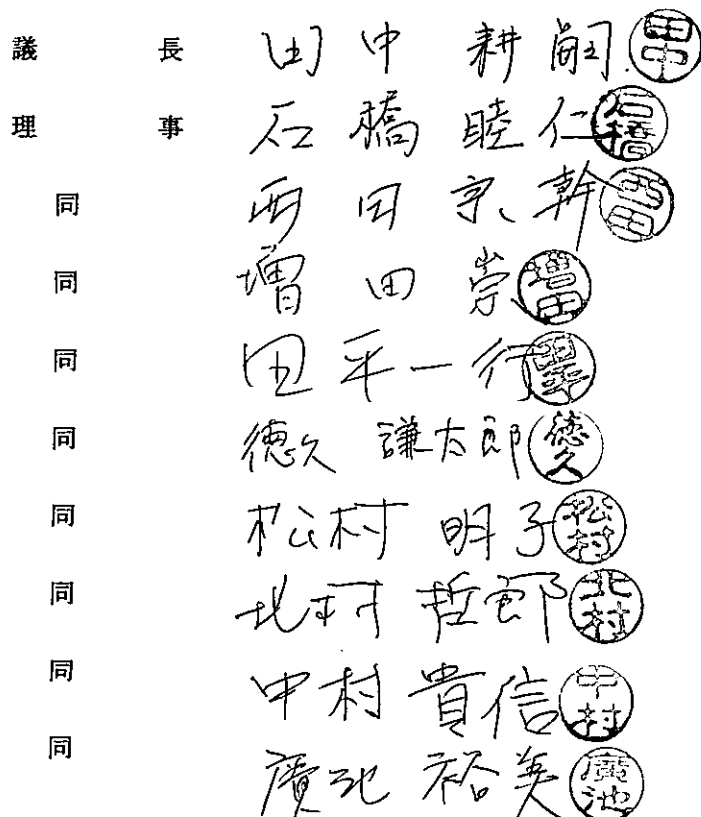 議長 田中耕嗣 田中
理事 石橋睦仁 石橋
同 西田宗幹 西田
同 増田崇 増田
同 田平一行 田平
同 徳久謙太郎 徳久
同 松村明子 松村
同 北村哲郎 北村
同 中村貴信 中村
同 廣池裕美 廣池